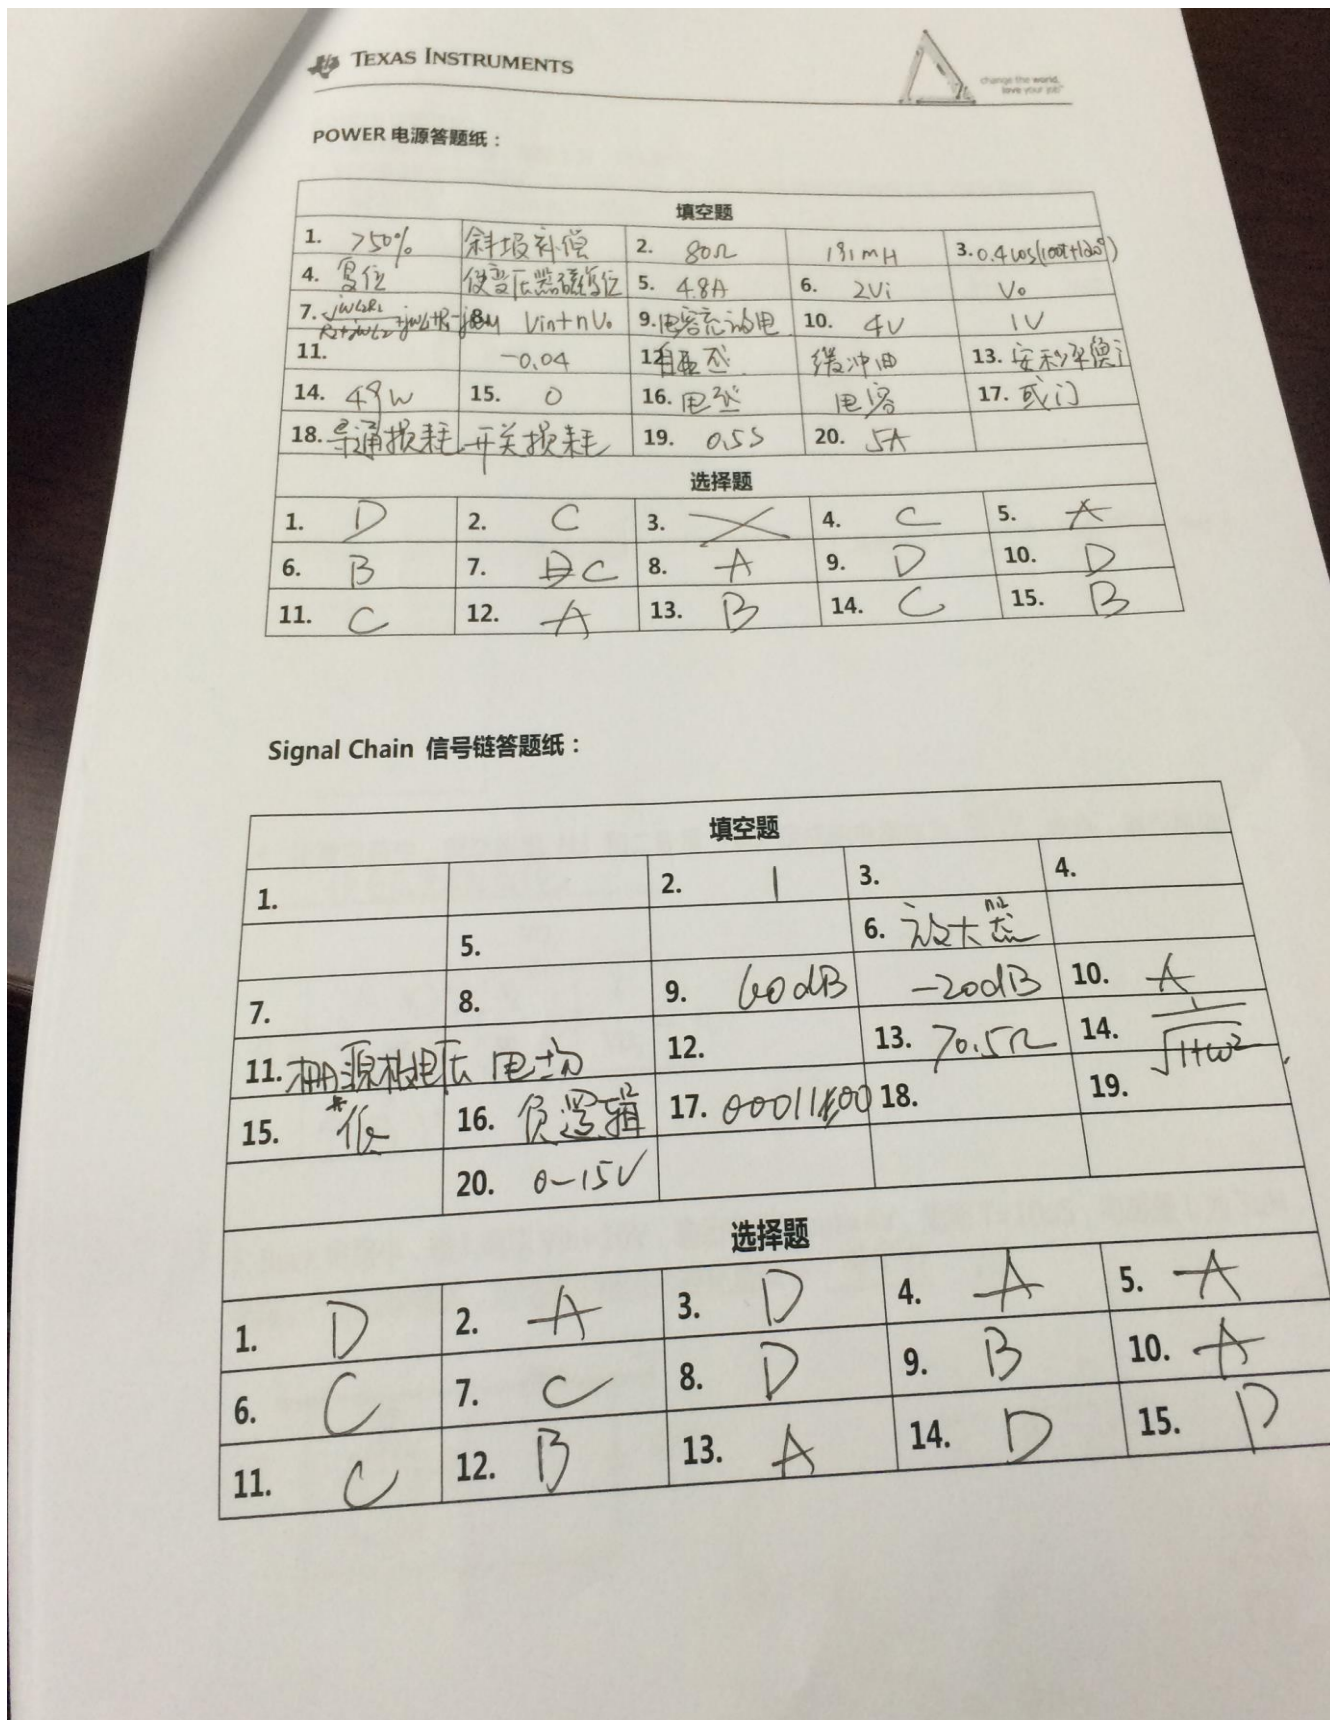 TEXAS INSTRUMENTS
change the world,
love your job
POWER 电源答题纸：
填空题
1. >50% 斜坡补偿 2. 80Ω 191mH 3. 0.4cos(100t+120°)
4. 复位 使变压器磁复位 5. 4.8A 6. 2Vi Vo
7. 8. Vin+nVo 9. 电容 10. 4V 1V
11. -0.04 12. 缓冲 13. 安秒平衡
14. 49W 15. 0 16. 电 电容 17. 或门
18. 导通损耗 开关损耗 19. 0.5S 20. 5A
选择题
1. D 2. C 3. 4. C 5. A
6. B 7. C 8. A 9. D 10. D
11. C 12. A 13. B 14. C 15. B
Signal Chain 信号链答题纸：
填空题
1. 2. 1 3. 4.
5. 6. 放大
7. 8. 9. 60dB -20dB 10. A
11. 栅源极电压 电场 12. 13. 70.5Ω 14. 1/√1+ω²
15. 低 16. 负逻辑 17. 18. 19.
20. 0-15V
选择题
1. D 2. A 3. D 4. A 5. A
6. C 7. C 8. D 9. B 10. A
11. C 12. B 13. A 14. D 15. D